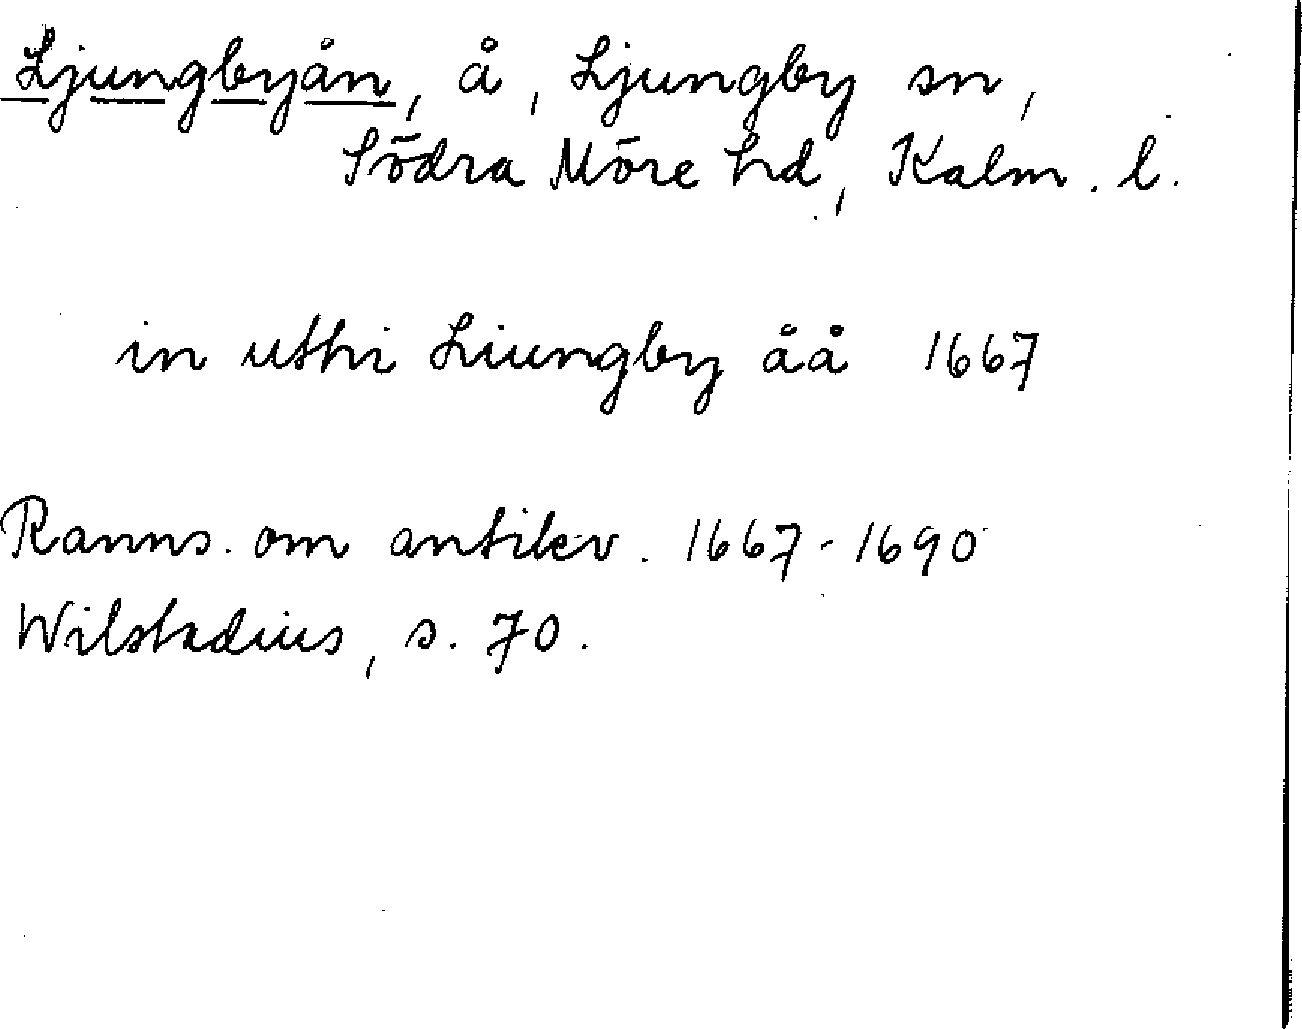 Ljungbyån, å, Ljungby sn,
Södra Möre hd, Kalm. l.
in uthi Liungby åå 1667
Ranns. om antikv. 1667-1690
Wilstadius, s. 70.